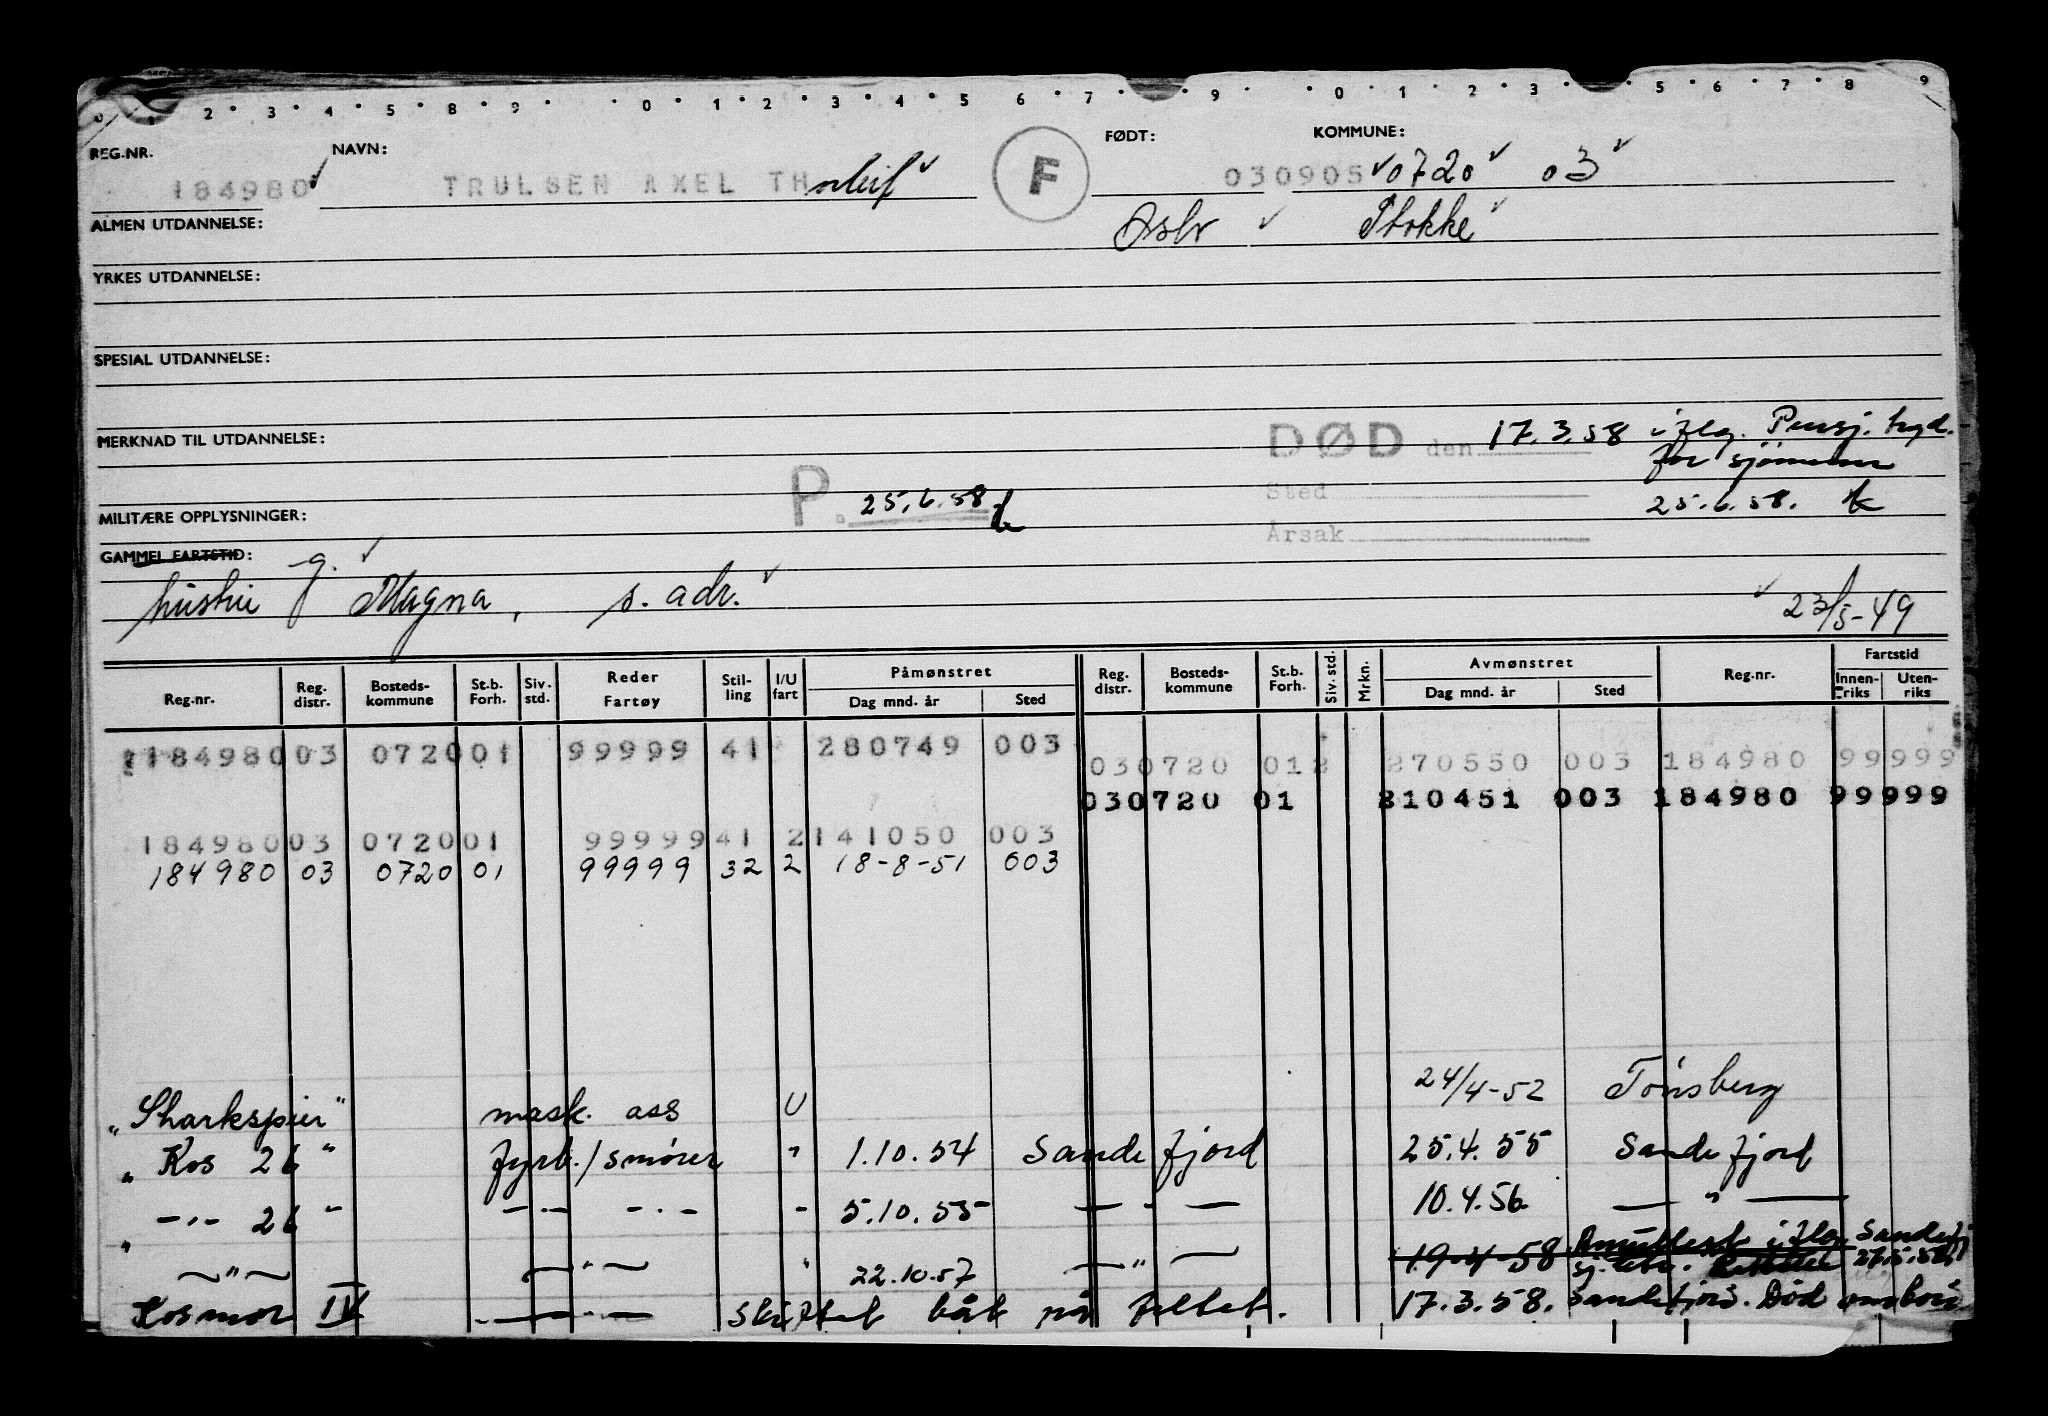 0 1 2 3 4 5 8 9 0 1 2 3 4 5 6 7 9 0 1 2 3 5 6 7 8 9
REG.NR. NAVN: F FØDT: KOMMUNE:
184980 TRULSEN AXEL THorleif 030905 0720 03
ALMEN UTDANNELSE: Oslo Stokke
YRKES UTDANNELSE:
SPESIAL UTDANNELSE:
MERKNAD TIL UTDANNELSE: DØD den 17.3.58 iflg. Pensj. tryd.
for sjømenn
P. 25.6.58 Sted 25.6.58.
MILITÆRE OPPLYSNINGER:
Årsak
GAMMEL FARTSTID: g.
hustru Magna, s. adr. 23/5-49
Reg.nr. Reg. distr. Bosteds-kommune St.b. Forh. Siv. std. Reder Fartøy Stil-ling I/U fart Påmønstret Dag mnd. år Sted Reg. distr. Bosteds-kommune St.b. Forh. Siv. std. Mrkn. Avmønstret Dag mnd. år Sted Reg.nr. Fartstid Innen-riks Uten-riks
184980 03 0720 01 99999 41 280749 003
030720 012 270550 003 184980 99999
030720 01 210451 003 184980 99999
184980 03 0720 01 99999 41 2 141050 003
184980 03 0720 01 99999 32 2 18-8-51 003
"Sharkspier" mask. ass U 24/4-52 Tønsberg
"Kos 26" fyrb./smører " 1.10.54 Sandefjord 25.4.55 Sandefjord
" -"- 26" -"- -"- " 5.10.55 -"- 10.4.56 -"-
-"- -"- " 22.10.57 -"- 19.4.58 iflg. Sandefj
27.5.58
Kosmos IV -"- skiftet båt på feltet. 17.3.58. Sandefjord. Død ombord